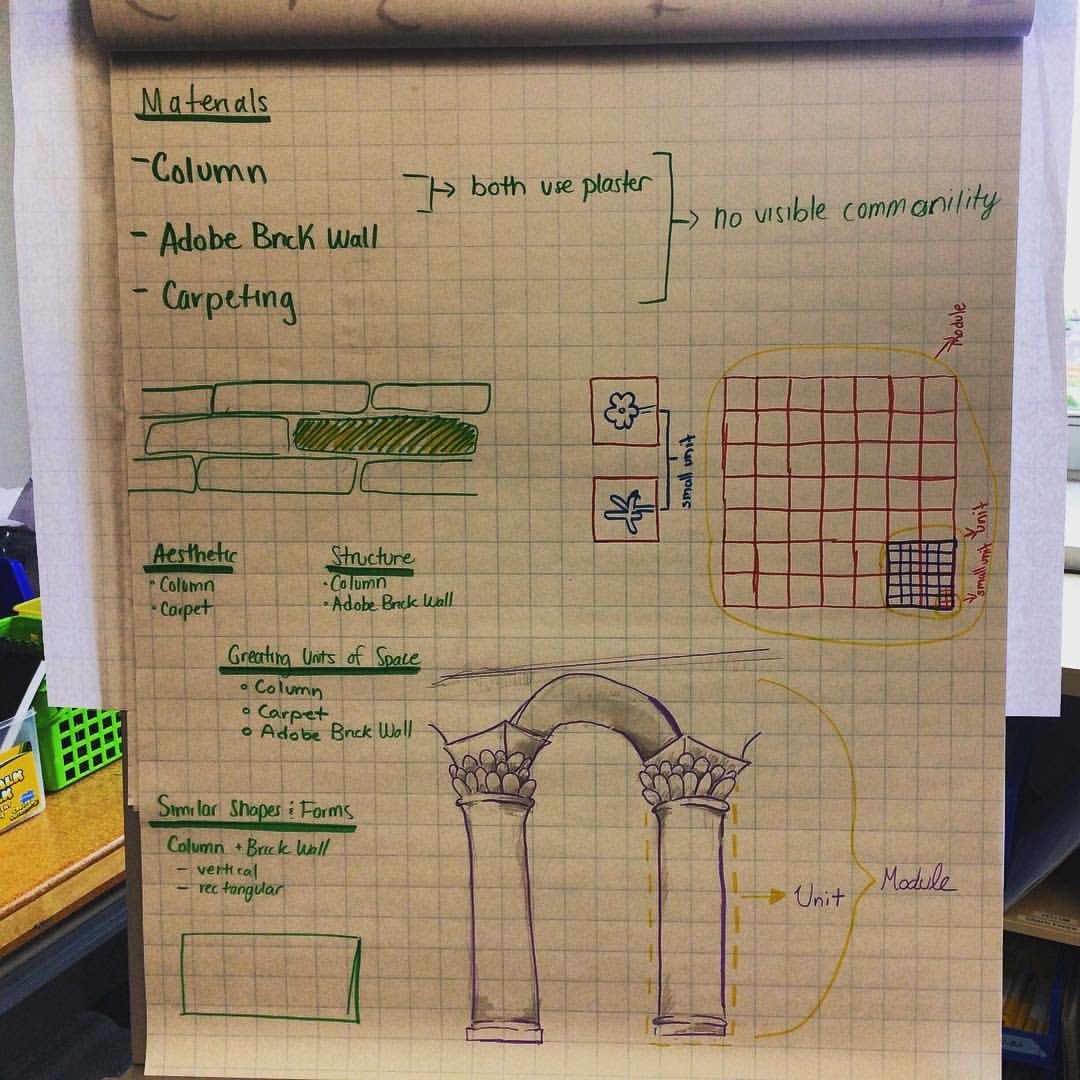 Materials
- Column
- Adobe Brick Wall
- Carpeting
both use plaster
no visible commonility
Module
small unit
unit
small unit
Aesthetic
· Column
· Carpet
Structure
· Column
· Adobe Brick Wall
Creating Units of Space
o Column
o Carpet
o Adobe Brick Wall
Similar Shapes & Forms
Column + Brick Wall
- vertical
- rectangular
Unit
Module